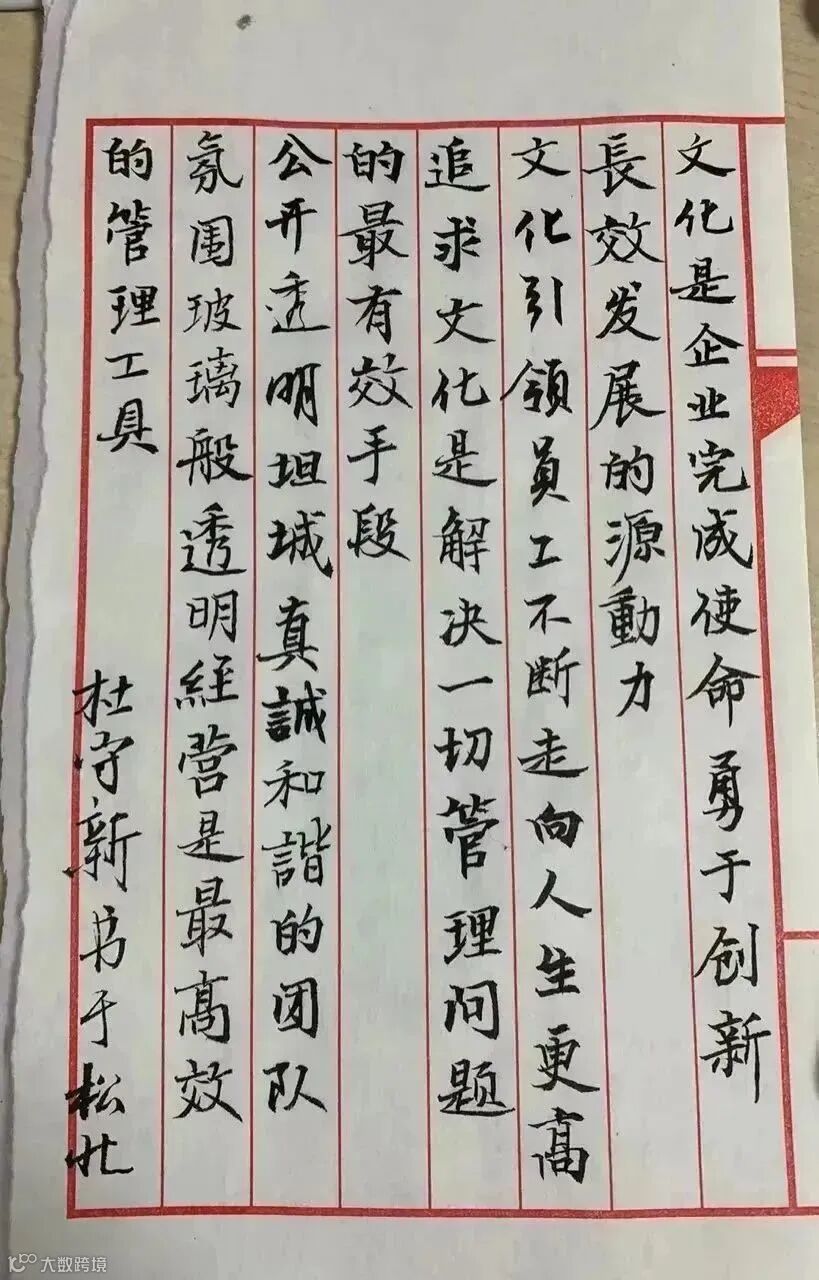 文化是企业完成使命勇于创新
長效发展的源動力
文化引领員工不断走向人生更高
追求文化是解决一切管理问题
的最有效手段
公开透明坦城真誠和諧的团队
氛围玻璃般透明經营是最高效
的管理工具
杜守新书于松北
大数跨境